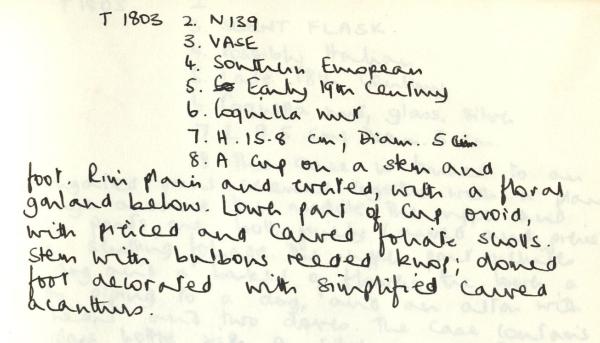 T 1803 2. N139
3. VASE
4. Southern European
5. Early 19th Century
6. Coquilla nut
7. H. 15.8 cm; Diam. 5 cm
8. A cup on a stem and
foot. Rim plain and everted, with a floral
garland below. Lower part of cup ovoid,
with pierced and carved foliate scrolls.
Stem with bulbous reeded knop; domed
foot decorated with simplified carved
acanthus.